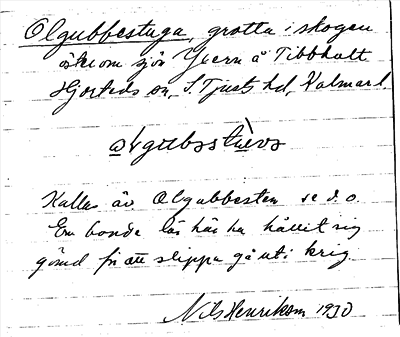 Olgubbestuga, grotta i skogen
öster om sjön Yxern å Tibbhult
Hjorteds sn, S. Tjusts hd, Kalmar l.
Kallas äv. Olgubbesten se d. o.
En bonde lär här ha hållit sig
gömd för att slippa gå ut i krig.
Nils Henrikson 1930